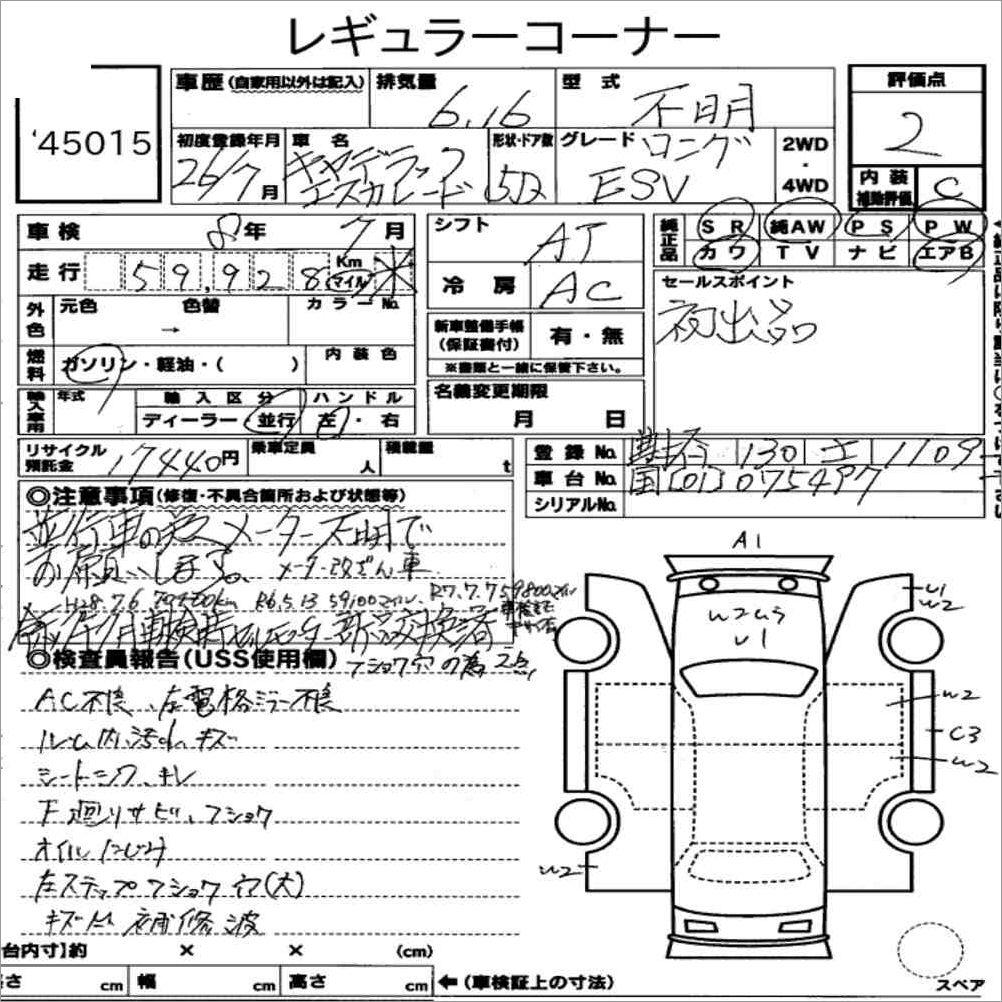 レギュラーコーナー
'45015
車歴(自家用以外は記入)
排気量 6.16
型式 不明
評価点
2
初度登録年月 26/7月
車名 キャデラック エスカレード
形状・ドア数 5D
グレード ロング ESV
2WD・4WD
内装補助評価 C
車検 8年 7月
シフト AT
純正品
SR 純AW PS PW
カワ TV ナビ エアB
走行 59,928 Km マイル
冷房 AC
セールスポイント
初出品
外色 元色 → 色替 カラーNo.
新車整備手帳(保証書付) 有・無
※書類と一緒に保管下さい。
燃料 ガソリン・軽油・( )
内装色
名義変更期限 月 日
輸入車用 年式
輸入区分 ディーラー・並行
ハンドル 左・右
リサイクル預託金 17440円
乗車定員 人
積載量 t
登録No. 130 1109
車台No. 国[01]075497
シリアルNo.
◎注意事項(修復・不具合箇所および状態等)
並行車の為メーター不明で
お願いします。 メーター改ざん車
R6.5.13 59100マイル R7.7.7 59800マイル
◎検査員報告(USS使用欄)
フショク穴の為2点
AC不良、左電格ミラー不良
ルーム内汚れ、キズ
シートスレ、キレ
下廻りサビ、フショク
オイルにじみ
左ステップフショク穴(大)
キズ凹 補修波
A1
W2ムラ
U1
U1
W2
W2
C3
W2
W2
台内寸】約 × × (cm)
さ cm 幅 cm 高さ cm ←(車検証上の寸法)
スペア